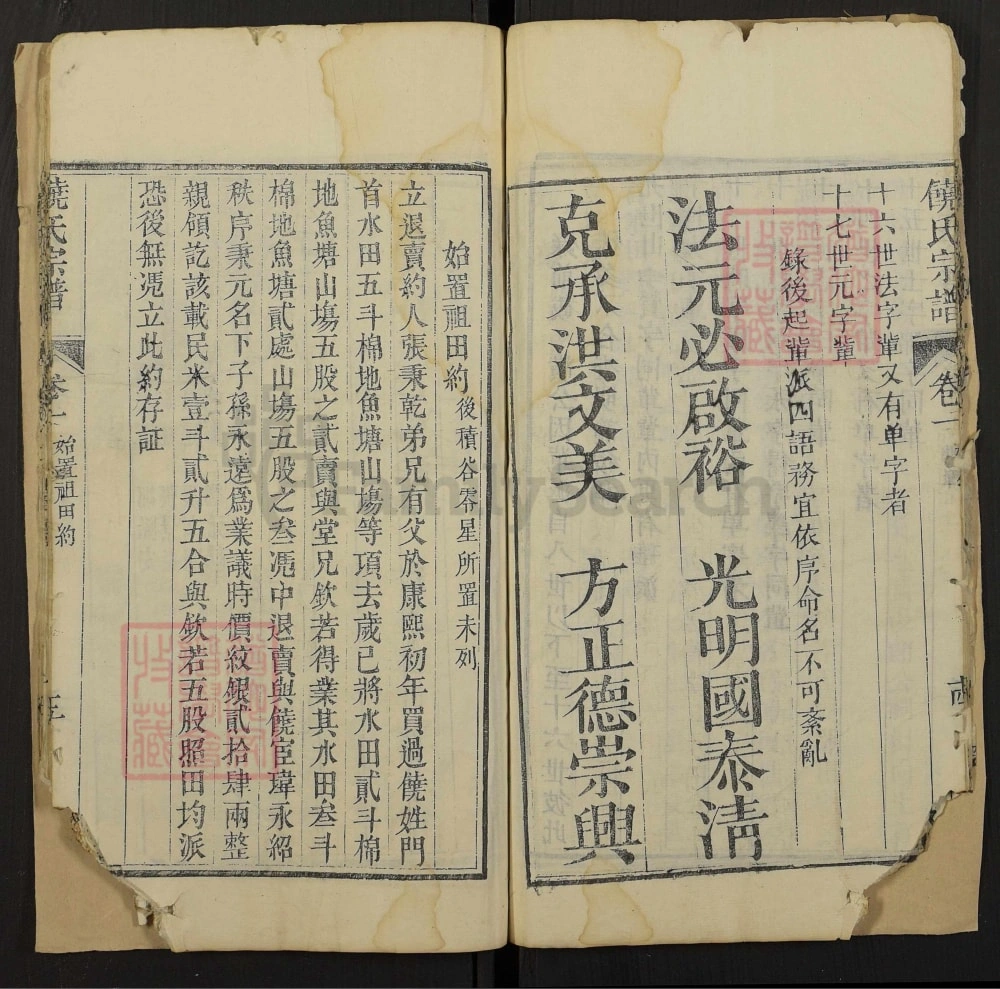 饒氏宗譜 卷一
十六世法字輩又有单字者
十七世元字輩
錄後起輩派四語務宜依序命名不可紊亂
法元必啟裕 光明國泰淸
克承洪文美 方正德崇興
始置祖田約後積谷零星所置未列
立退賣約人張秉乾弟兄有父於康熙初年買過饒姓門
首水田五斗棉地魚塘山塲等項去歲已將水田貳斗棉
地魚塘山塲五股之貳賣與堂兄欽若得業其水田叁斗
棉地魚塘貳處山塲五股之叁憑中退賣與饒宦瑋永紹
秩序秉元名下子孫永遠爲業議時價紋銀貳拾肆兩整
親領訖該載民米壹斗貳升五合與欽若五股照田均派
恐後無憑立此約存証
饒氏宗譜 卷一 始置祖田約
FamilySearch